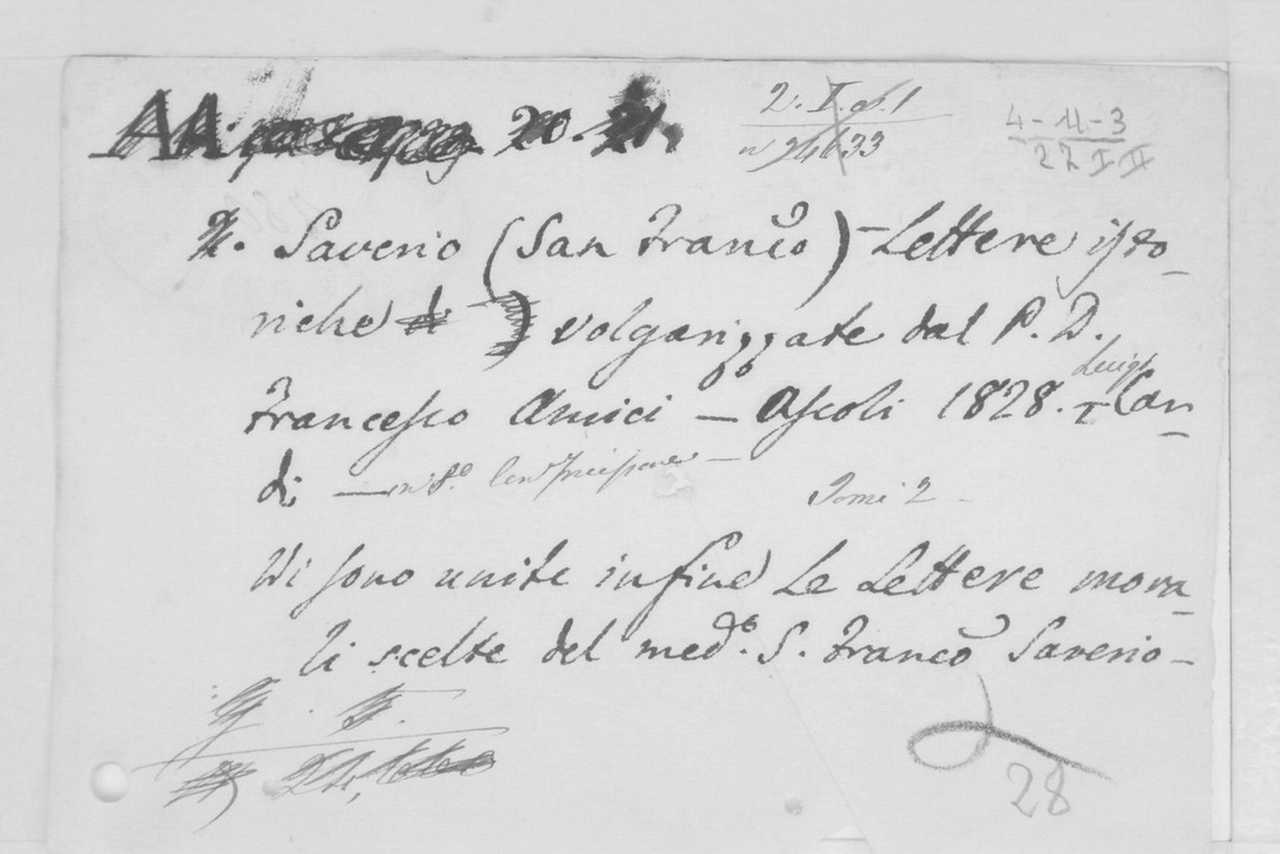 20. 21.
2. I. d. 1
n 24633
4-11-3
27 I II
Saverio (San Franco) - Lettere isto-
riche di volgarizzate dal P. D.
Francesco Amici - Ascoli 1828.
Luigi Car-
di - in 8°
Tomi 2 -
Vi sono unite in fine le Lettere mora-
li scelte del medo. S. Franco Saverio -
24,
28